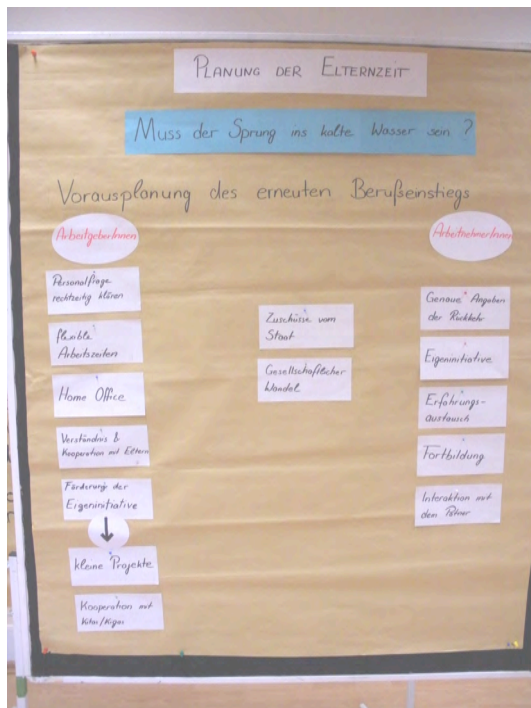 PLANUNG DER ELTERNZEIT
Muss der Sprung ins kalte Wasser sein ?
Vorausplanung des erneuten Berufseinstiegs
ArbeitgeberInnen
Personalfrage
rechtzeitig klären
flexible
Arbeitszeiten
Home Office
Verständnis &
Kooperation mit Eltern
Förderung der
Eigeninitiative
kleine Projekte
Kooperation mit
Kitas/Kigas
Zuschüsse vom
Staat
Gesellschaftlicher
Wandel
ArbeitnehmerInnen
Genaue Angaben
der Rückkehr
Eigeninitiative
Erfahrungs-
austausch
Fortbildung
Interaktion mit
dem Partner